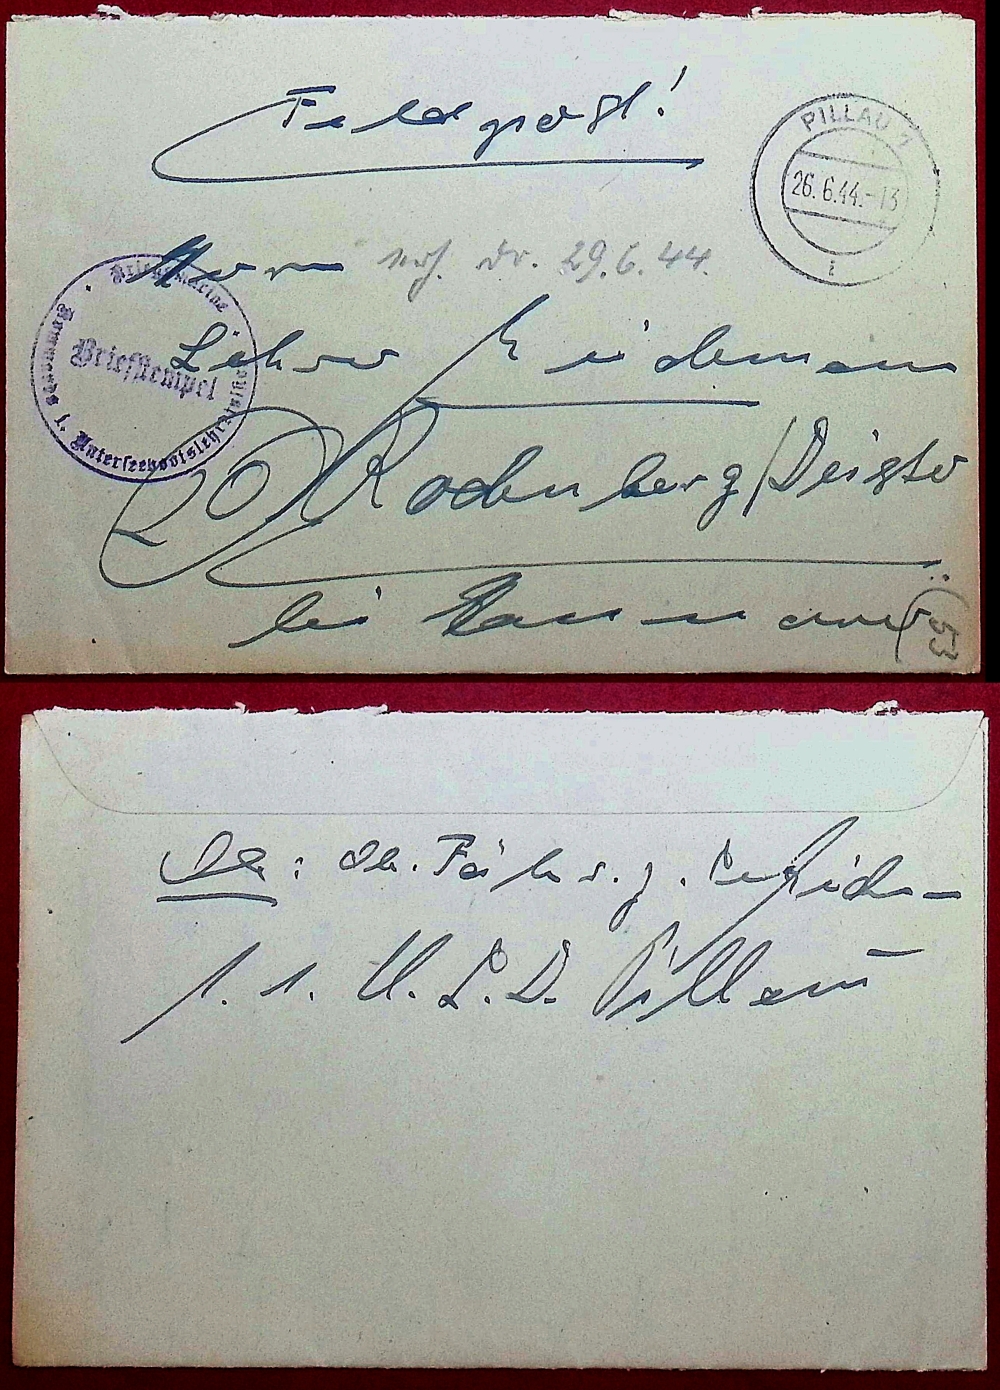 Feldpost!
PILLAU 1
26.6.44.-13
i
Herrn
erh. Do. 29.6.44.
Kriegsmarine
Kommando 1. Unterseebootslehrdivision
Briefstempel
Lehrer
20 Rodenberg/Deister
bei Hannover
(53
Ob. Fähr. z.
1. 1. U.L.D. Pillau